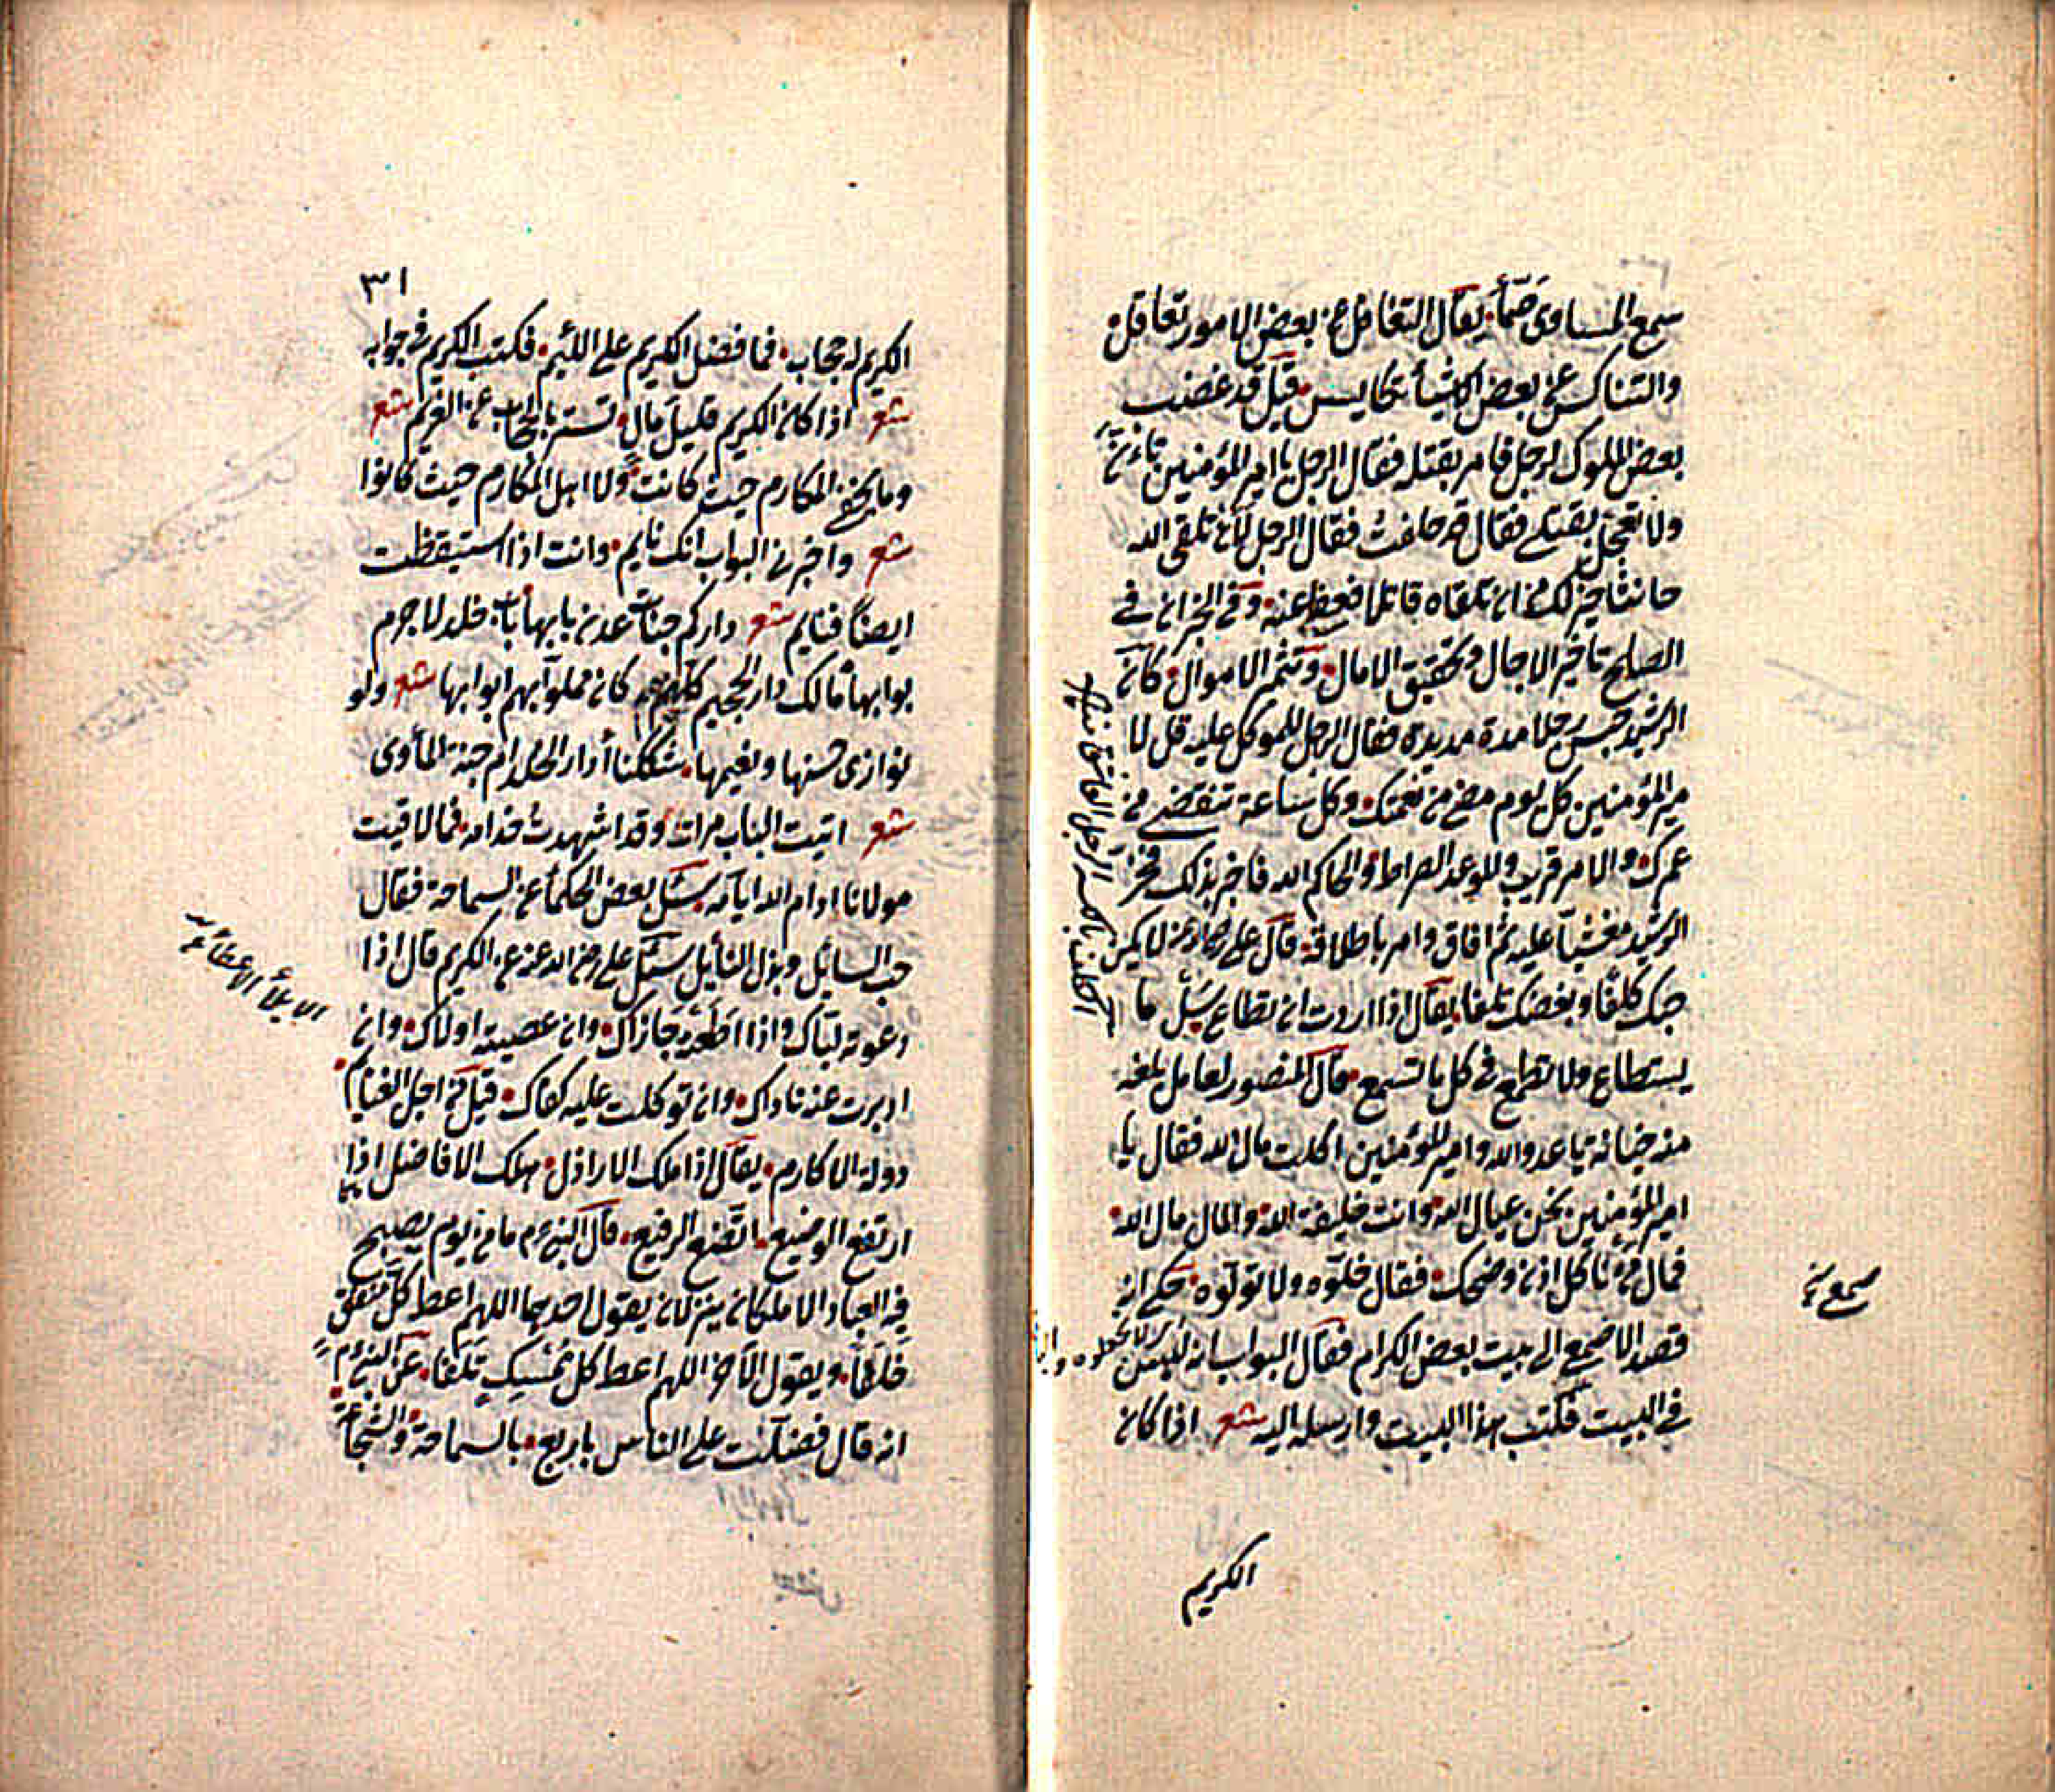 سمع المساوى صمّاً يقال التغافل عن بعض الامور تعاقل
والتناكس عن بعض الاشيأ تكايس قيل قد غضب
بعض الملوك لرجل فامر بقتله فقال الرجل يا امير المؤمنين تاءنّ
ولا تعجل بقتلى فقال قد حلفت فقال الرجل لأن تلقى الله
حانثا خير لك من ان تلقاه قاتلا فعفا عنه وفى الخبر ان فى
الصلح تاخير الاجال وتحقيق الامال وتثمر الاموال كان
الرشيد حبس رجلا مدة مديدة فقال الرجل للموكل عليه قل لا
مير المؤمنين كل يوم مضى من نعمتك وكل ساعة تنقضى من
عمرك والامر قريب والموعد الصراط والحاكم الله فاخبر بذلك فخرّ
الرشيد مغشيا عليه ثم افاق وامر باطلاقه قال على لا يكن
حبك كلفا وبغضك تلفا يقال اذا اردت ان تطاع سئل ما
يستطاع ولا تطمع فى كل ما تسمع قال المنصور لعامل بلغه
منه خيانة يا عدو الله وامير المؤمنين اكلت مال الله فقال يا
امير المؤمنين نحن عيال الله وانت خليفة الله والمال مال الله
فمال من نأكل اذن وضحك فقال خلّوه ولا تولّوه حكى انه
قصد الاصمعى الى بيت بعض الكرام فقال البواب انه ليس
فى البيت فكتب هذا البيت وارسله اليه شعر اذا كان
الكريم
٣١
الكريم له حجاب فما فضل الكريم على اللئيم فكتب الكريم فى جوابه
شعر اذا كان الكريم قليل مال تستر بالحجاب عن الغريم شعر
وما يخفى المكارم حيث كانت ولا اهل المكارم حيث كانوا
شعر واخبرنى البواب انك نايم وانت اذا استيقظت
ايضاً فنايم شعر داركم جنات عدن بابها باب خلد لا جرم
بوابها مالك دار الجحيم كان مملوآ بهم ابوابها شعر ولو
نوازى حسنها ونعيمها شككنا أدار الخلد ام جنة المأوى
شعر اتيت الباب مرات وقد اشهدت خدامه فما لاقيت
مولانا ادام الله ايامه سئل بعض الحكمأ عن السماحة فقال
حب السائل وبذل النأيل سئل على رضى الله عنه عن الكريم قال اذا
دعوته لبّاك واذا اطعته جازاك وان عصيته اولاك وان
ادبرت عنه ناداك وان توكلت عليه كفاك قيل من اجل الغنايم
دولة الاكارم يقال اذا ملك الاراذل هلك الافاضل اذا
ارتفع الوضيع اتضع الرفيع قال النبى ءم ما من يوم يصبح
فيه العباد الا ملكان ينزلان يقول احدهما اللهم اعط كل منفق
خلفاً ويقول الآخر اللهم اعط كل ممسك تلفا عن النبى ءم
انه قال فضلت على الناس باربع بالسماحة والشجاعة